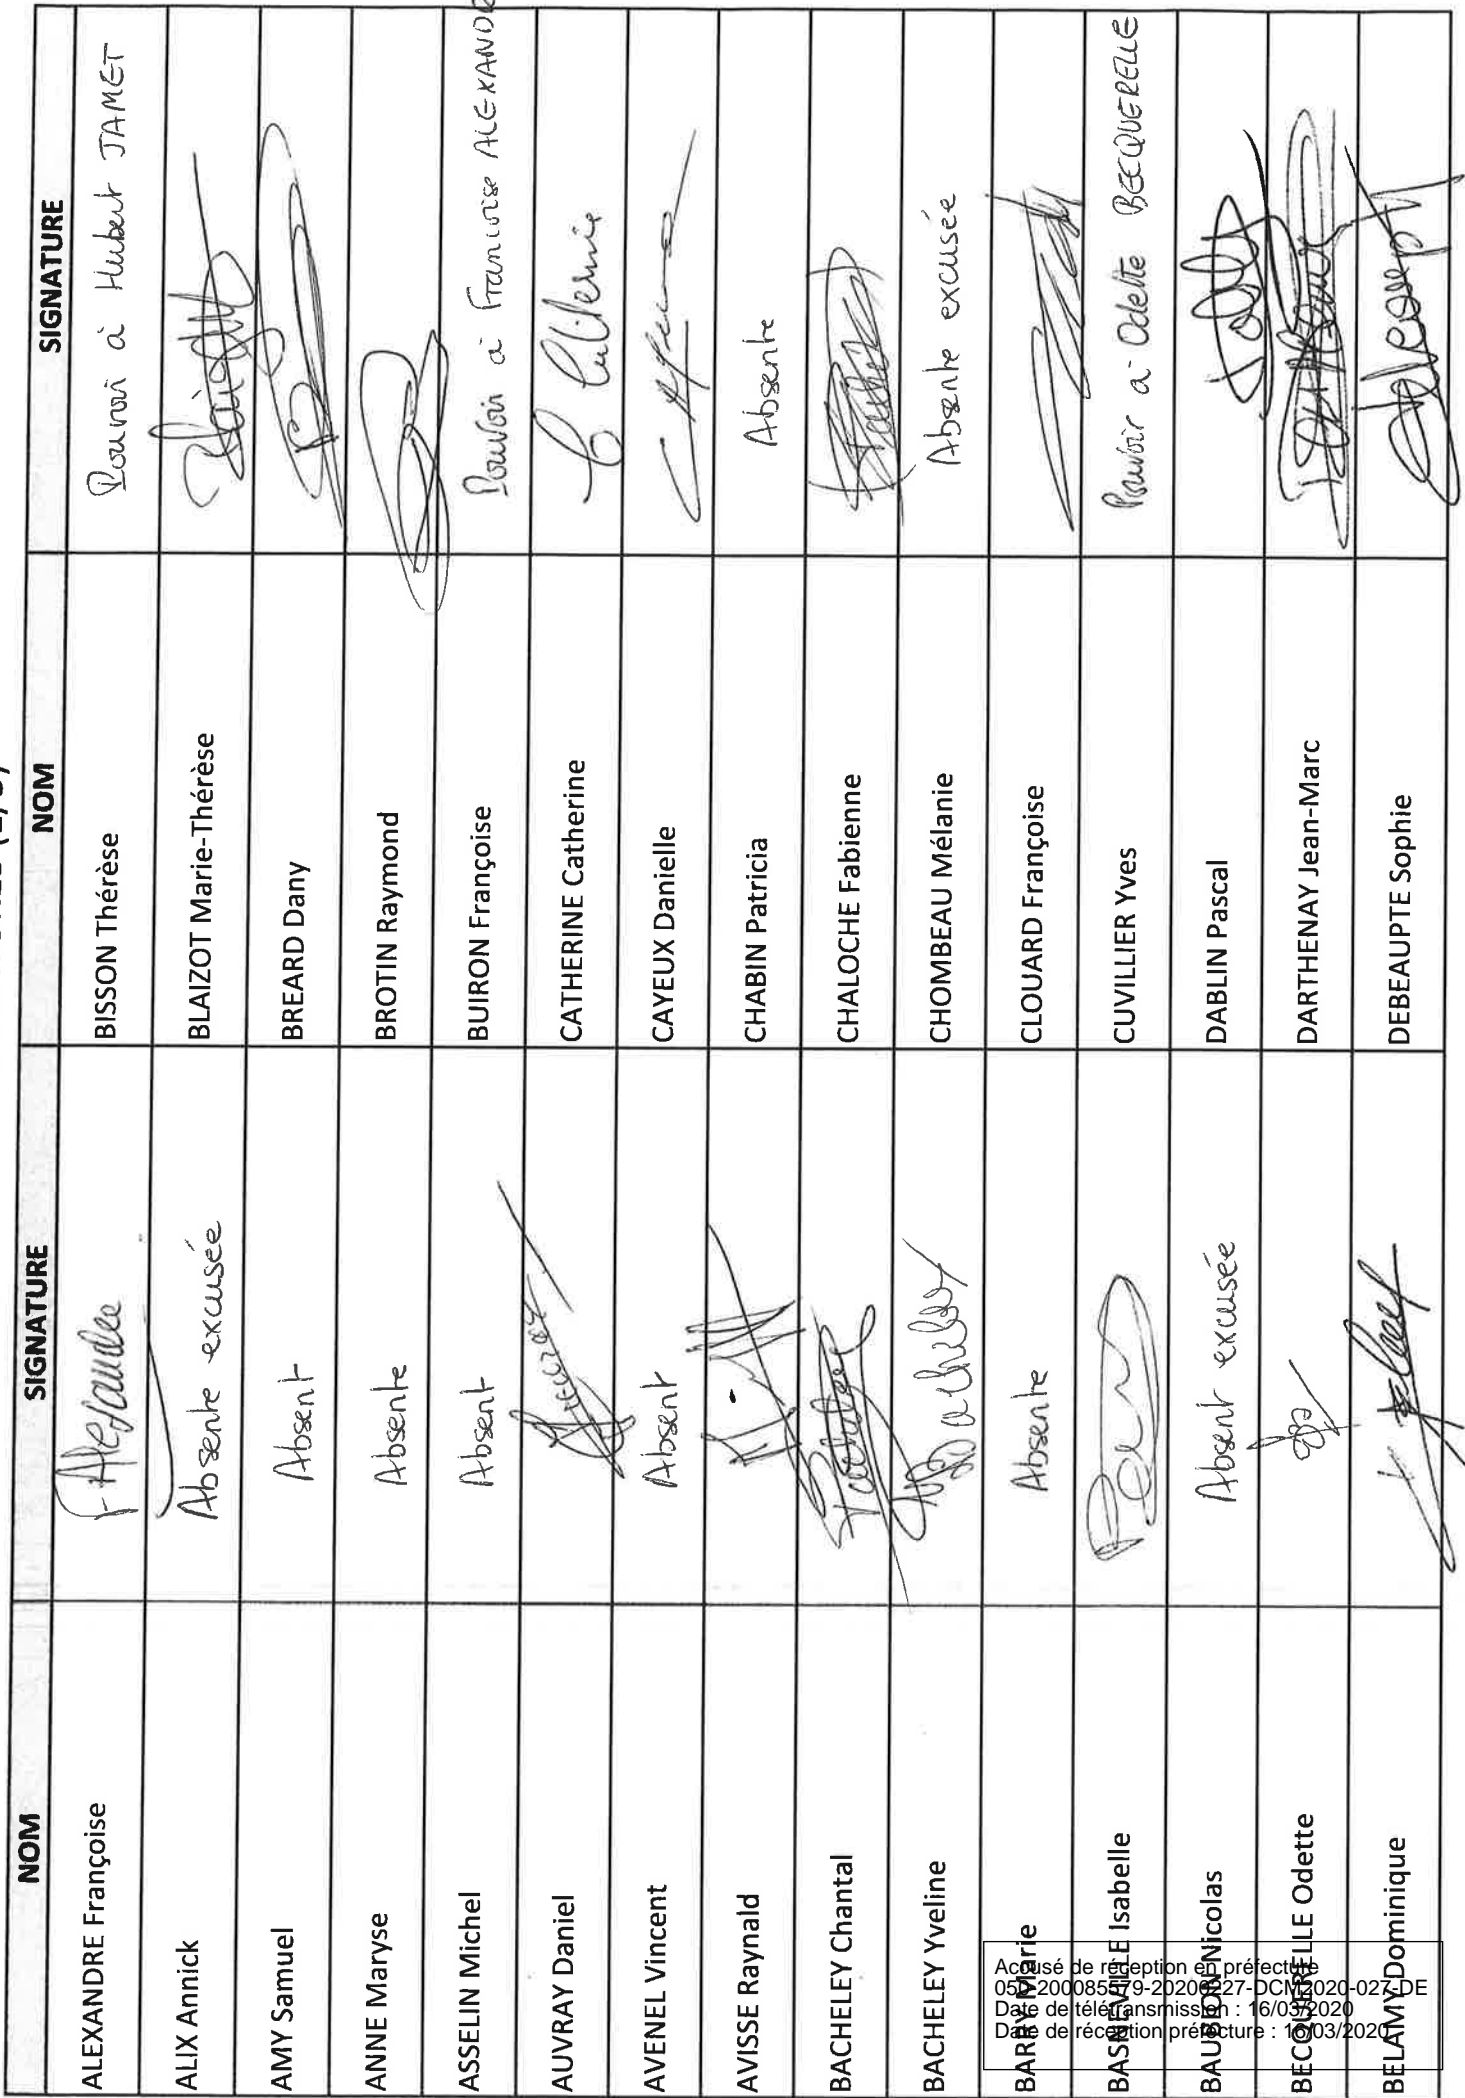 NOM SIGNATURE NOM SIGNATURE
ALEXANDRE Françoise F. Alexandre BISSON Thérèse Pouvoir à Hubert JAMET
ALIX Annick Absente excusée BLAIZOT Marie-Thérèse
AMY Samuel Absent BREARD Dany
ANNE Maryse Absente BROTIN Raymond
ASSELIN Michel Absent BUIRON Françoise Pouvoir à Françoise ALEXANDR
AUVRAY Daniel CATHERINE Catherine
AVENEL Vincent Absent CAYEUX Danielle
AVISSE Raynald CHABIN Patricia Absente
BACHELEY Chantal CHALOCHE Fabienne
BACHELEY Yveline CHOMBEAU Mélanie Absente excusée
BARRY Marie Absente CLOUARD Françoise
BASNEVILLE Isabelle CUVILLIER Yves Pouvoir à Odette BECQUERELLE
BAUBION Nicolas Absent excusée DABLIN Pascal
BECQUERELLE Odette DARTHENAY Jean-Marc
BELAMY Dominique DEBEAUPTE Sophie
Accusé de réception en préfecture
Date de télétransmission : 16/03/2020
Date de réception préfecture : 16/03/2020